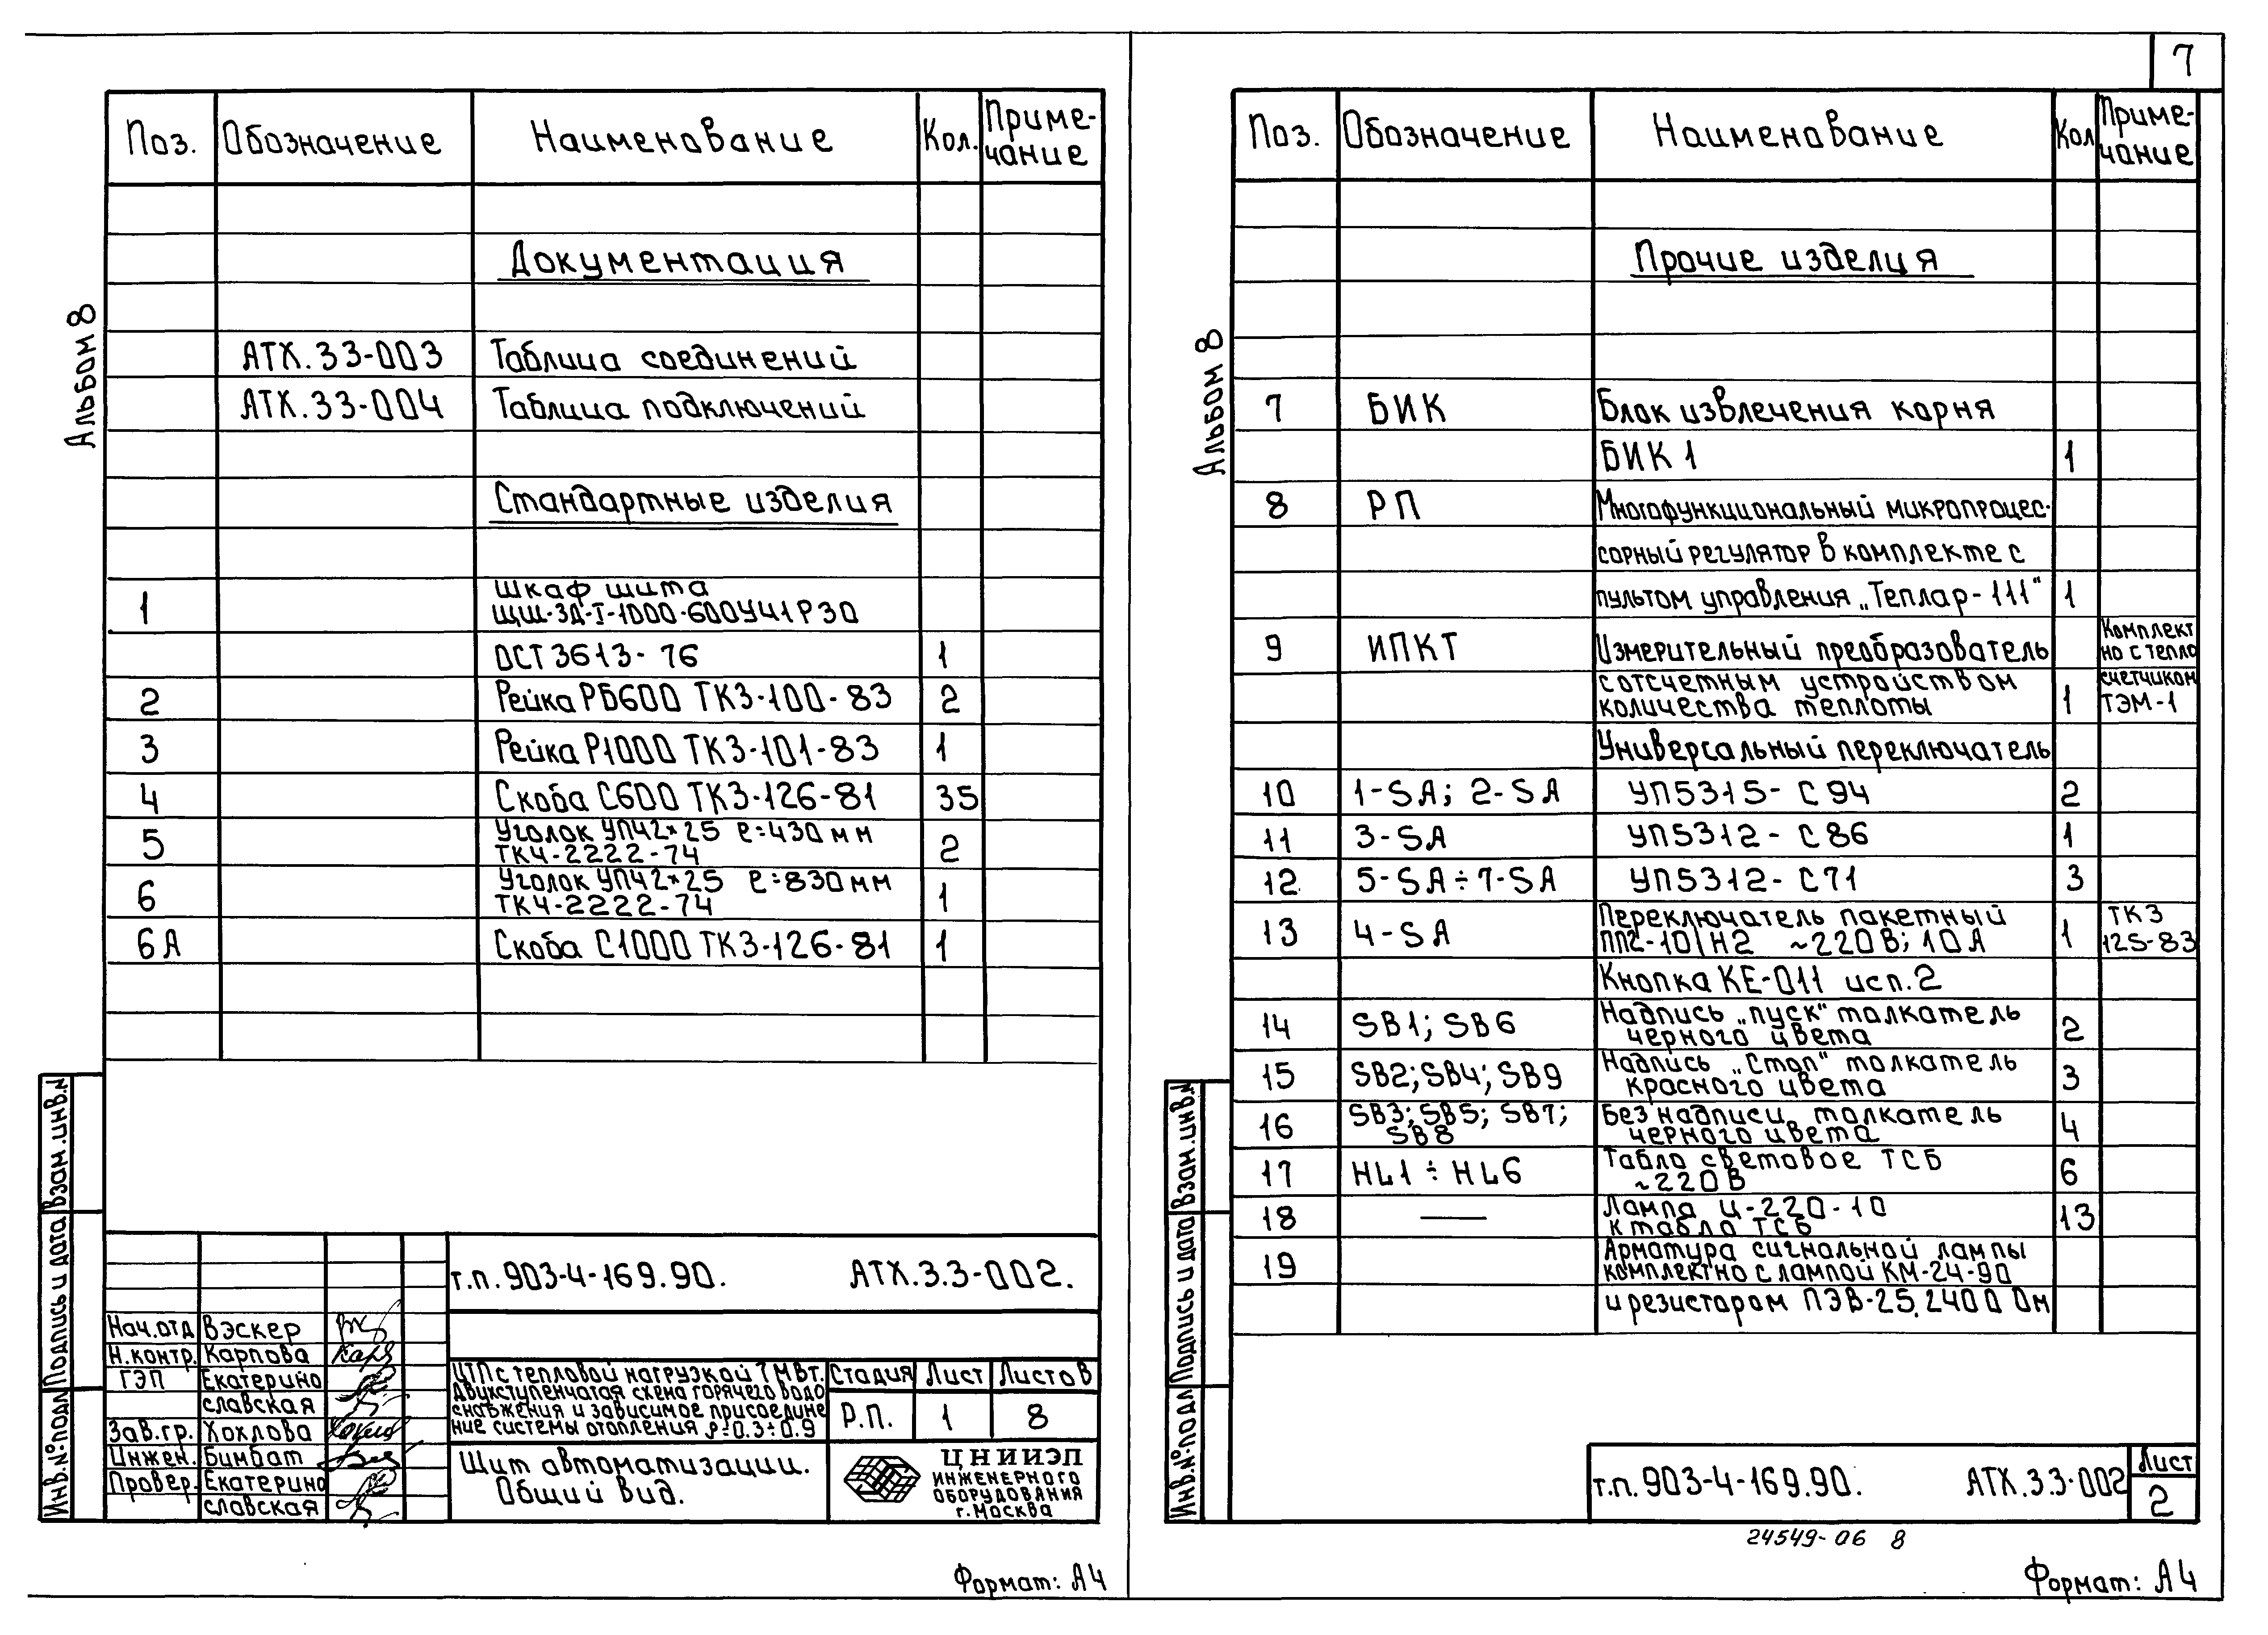 7
Альбом 8
Поз. Обозначение Наименование Кол. Приме-
чание
Документация
АТХ.33-003 Таблица соединений
АТХ.33-004 Таблица подключений
Стандартные изделия
1 Шкаф щита
ЩШ-ЗД-I-1000-600У41Р30
ОСТ 3613-76 1
2 Рейка РБ600 ТК3-100-83 2
3 Рейка Р1000 ТК3-101-83 1
4 Скоба С600 ТК3-126-81 35
5 Уголок УП42×25 ℓ=430мм
ТК4-2222-74 2
6 Уголок УП42×25 ℓ=830мм
ТК4-2222-74 1
6А Скоба С1000 ТК3-126-81 1
Инв.№подл Подпись и дата Взам.инв.N
т.п.903-4-169.90. АТХ.3.3-002.
Нач.отд Вэскер
Н.контр. Карпова
ГЭП Екатерино
славская
Зав.гр. Хохлова
Инжен. Бимбат
Провер. Екатерино
славская
ЦТП с тепловой нагрузкой 7 МВт.
Двухступенчатая схема горячего водо
снабжения и зависимое присоедине
ние системы отопления ρ=0.3÷0.9
Стадия Лист Листов
Р.П. 1 8
Щит автоматизации.
Общий вид.
ЦНИИЭП
ИНЖЕНЕРНОГО
ОБОРУДОВАНИЯ
г.Москва
Формат: А4
Альбом 8
Поз. Обозначение Наименование Кол Приме-
чание
Прочие изделия
7 БИК Блок извлечения корня
БИК 1 1
8 РП Многофункциональный микропроцес-
сорный регулятор в комплекте с
пультом управления „Теплар-111" 1
9 ИПКТ Измерительный преобразователь
с отсчетным устройством
количества теплоты 1
Комплект
но с тепло
счетчиком
ТЭМ-1
Универсальный переключатель
10 1-SA; 2-SA УП5315-С94 2
11 3-SA УП5312-С86 1
12 5-SA÷7-SA УП5312-С71 3
13 4-SA Переключатель пакетный
ПП2-10/Н2 ~220В; 10А 1
ТК3
125-83
Кнопка КЕ-011 исп.2
14 SB1; SB6 Надпись „пуск" толкатель
черного цвета 2
15 SB2; SB4; SB9 Надпись „Стоп" толкатель
красного цвета 3
16 SB3; SB5; SB7;
SB8
Без надписи, толкатель
черного цвета 4
17 HL1÷HL6 Табло световое ТСБ
~220В 6
18 — Лампа Ц-220-10
к табло ТСБ 13
19 Арматура сигнальной лампы
комплектно с лампой КМ-24-90
и резистором ПЭВ-25, 2400 Ом
Инв.№подл Подпись и дата Взам.инв.N
т.п.903-4-169.90. АТХ.3.3-002
Лист
2
24549-06 8
Формат: А4